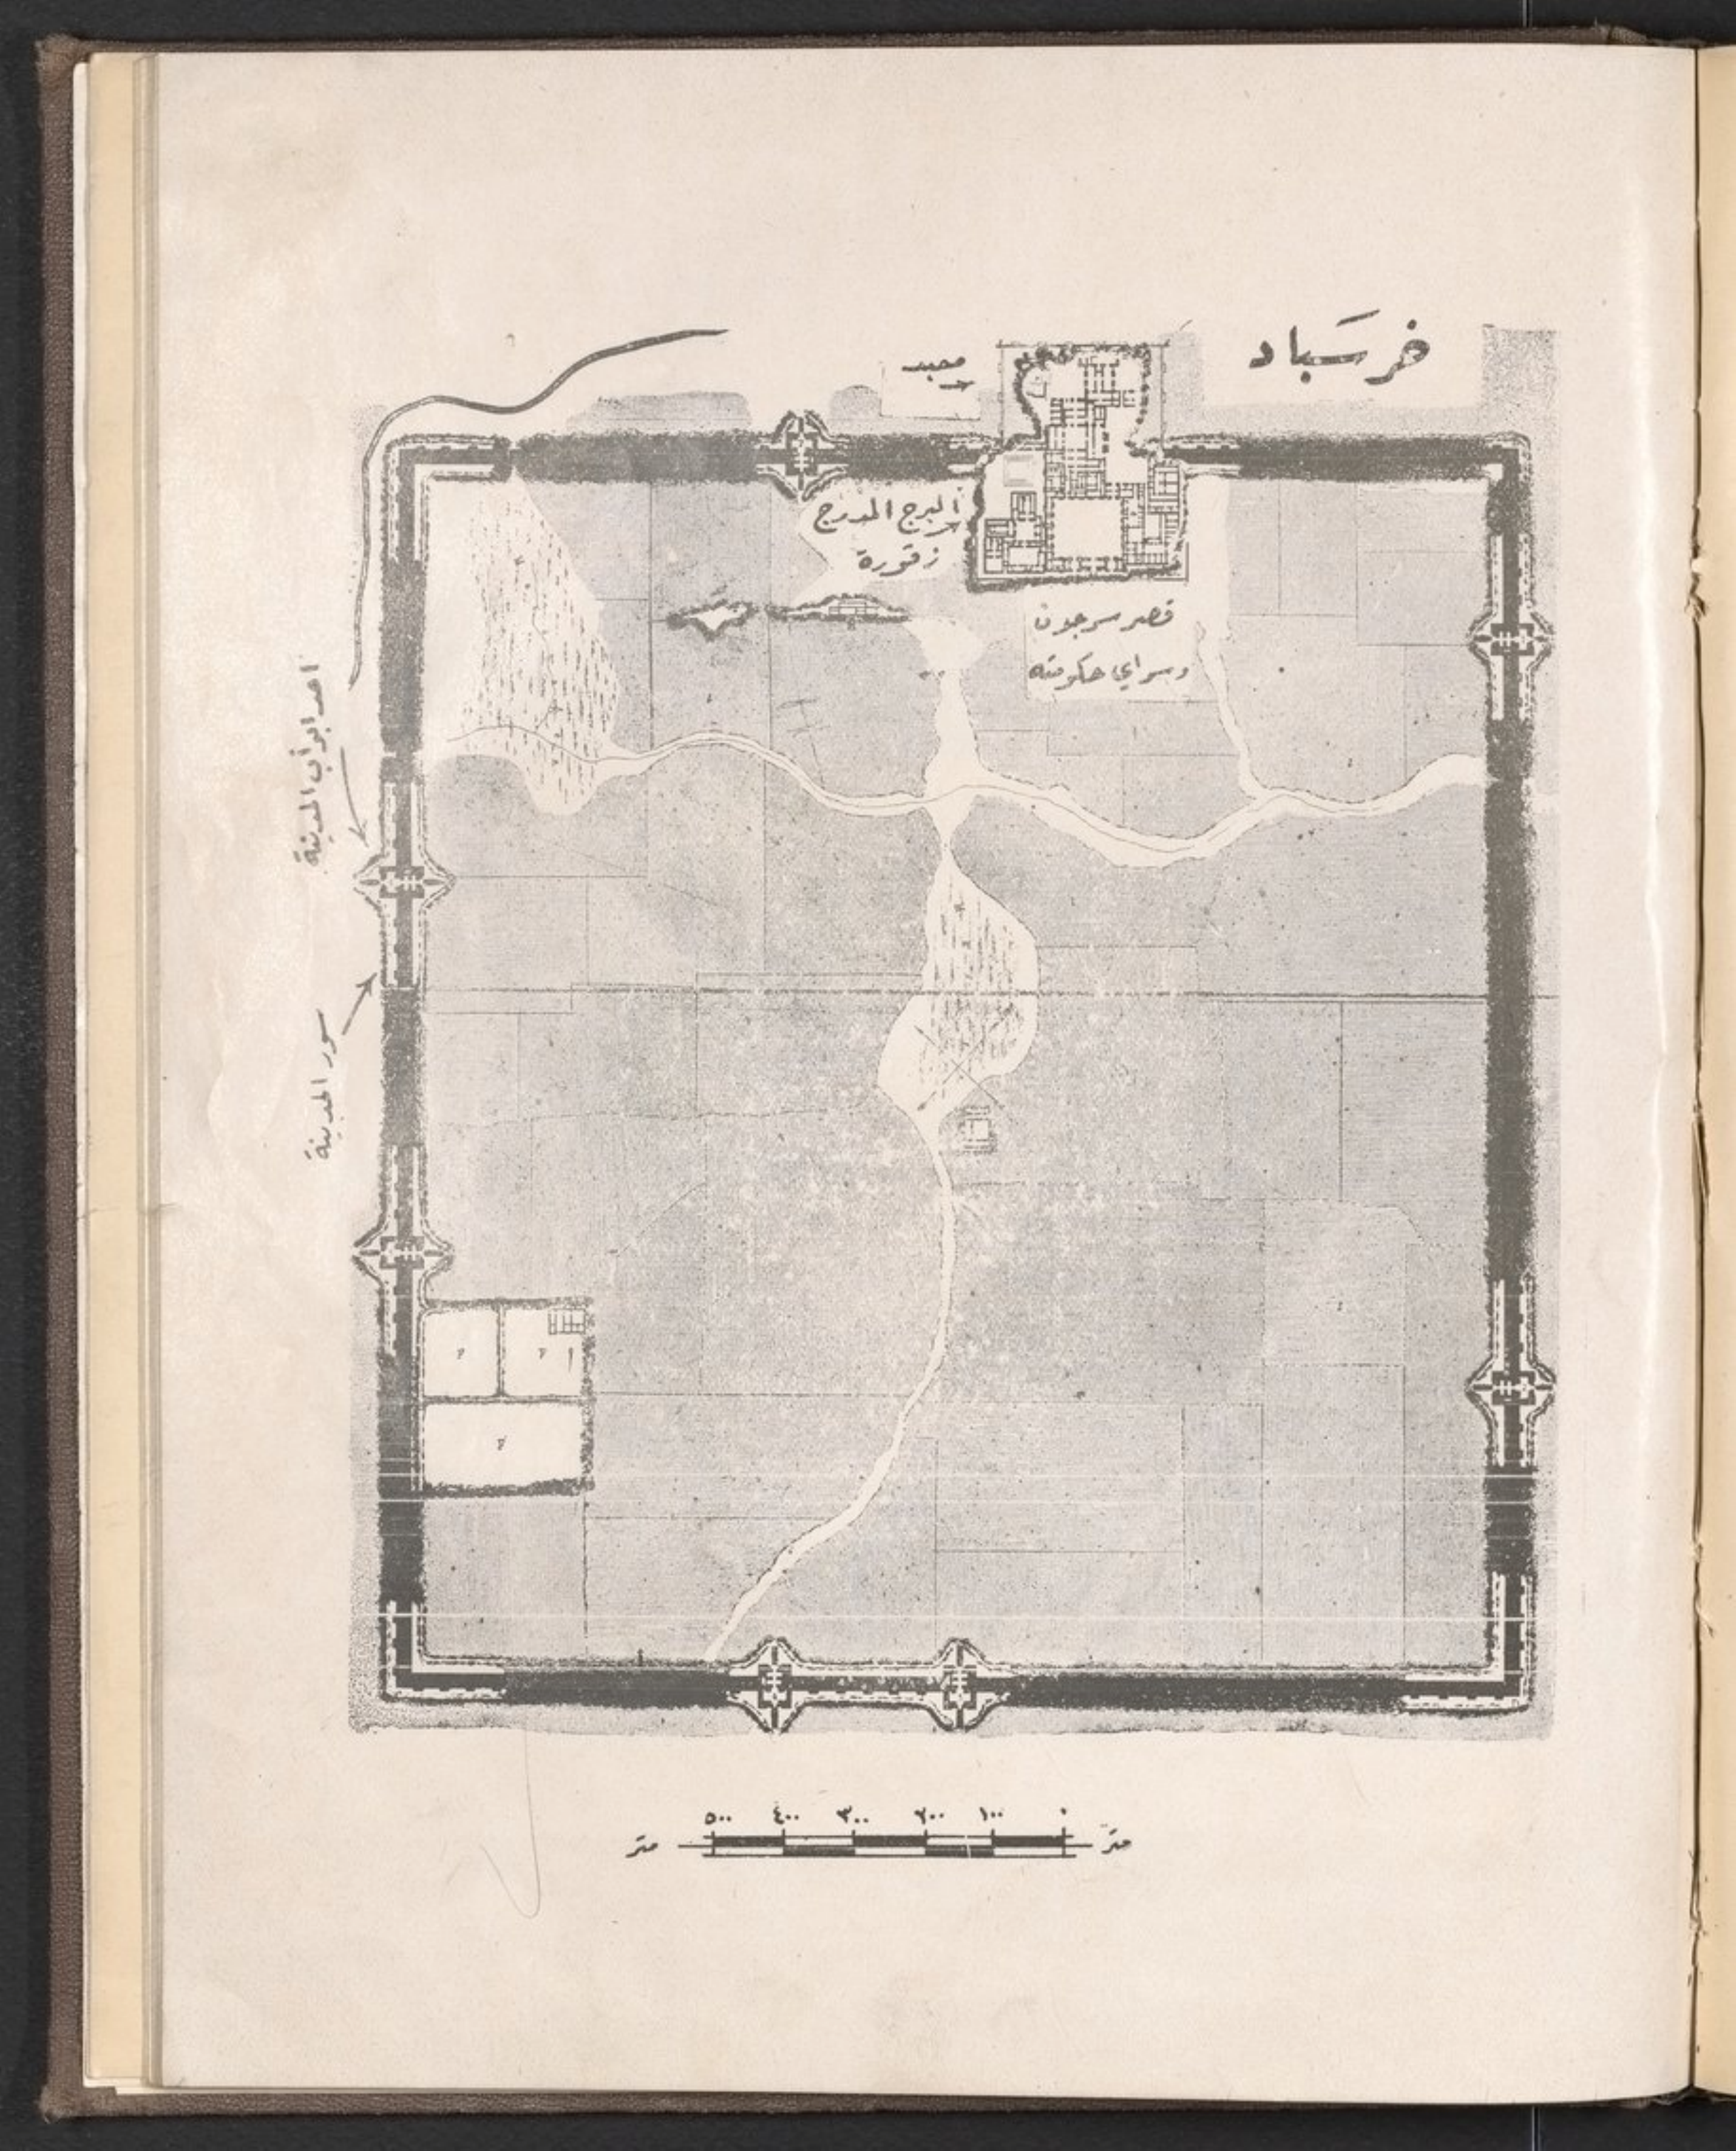 خرسَباد
معبد
البرج المدرج
زقورة
قصر سرجون
وسراي حكومته
احد ابواب المدينة
سور المدينة
٥٠٠ ٤٠٠ ٣٠٠ ٢٠٠ ١٠٠ ٠
متر متر